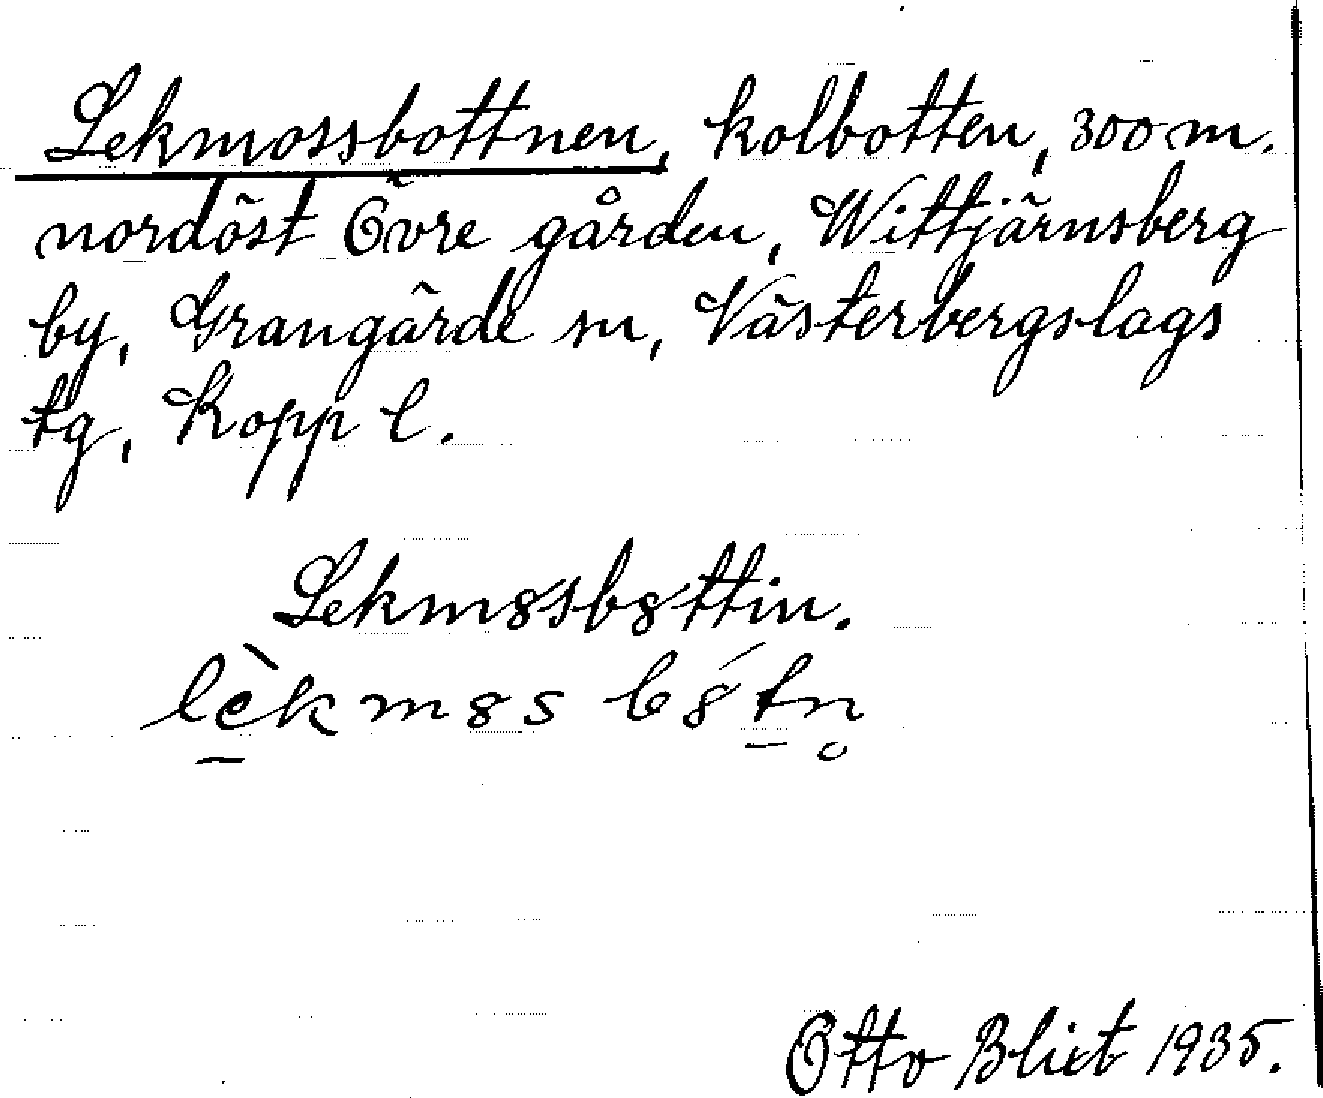 Lekmossbottnen, kolbotten, 300 m.
nordöst Övre gården, Wittjärnsberg
by, Grangärde sn, Västerbergslags
tg, Kopp l.
Lekm8sb8ttin.
lèkm8s b8́tn̥
Otto Blixt 1935.